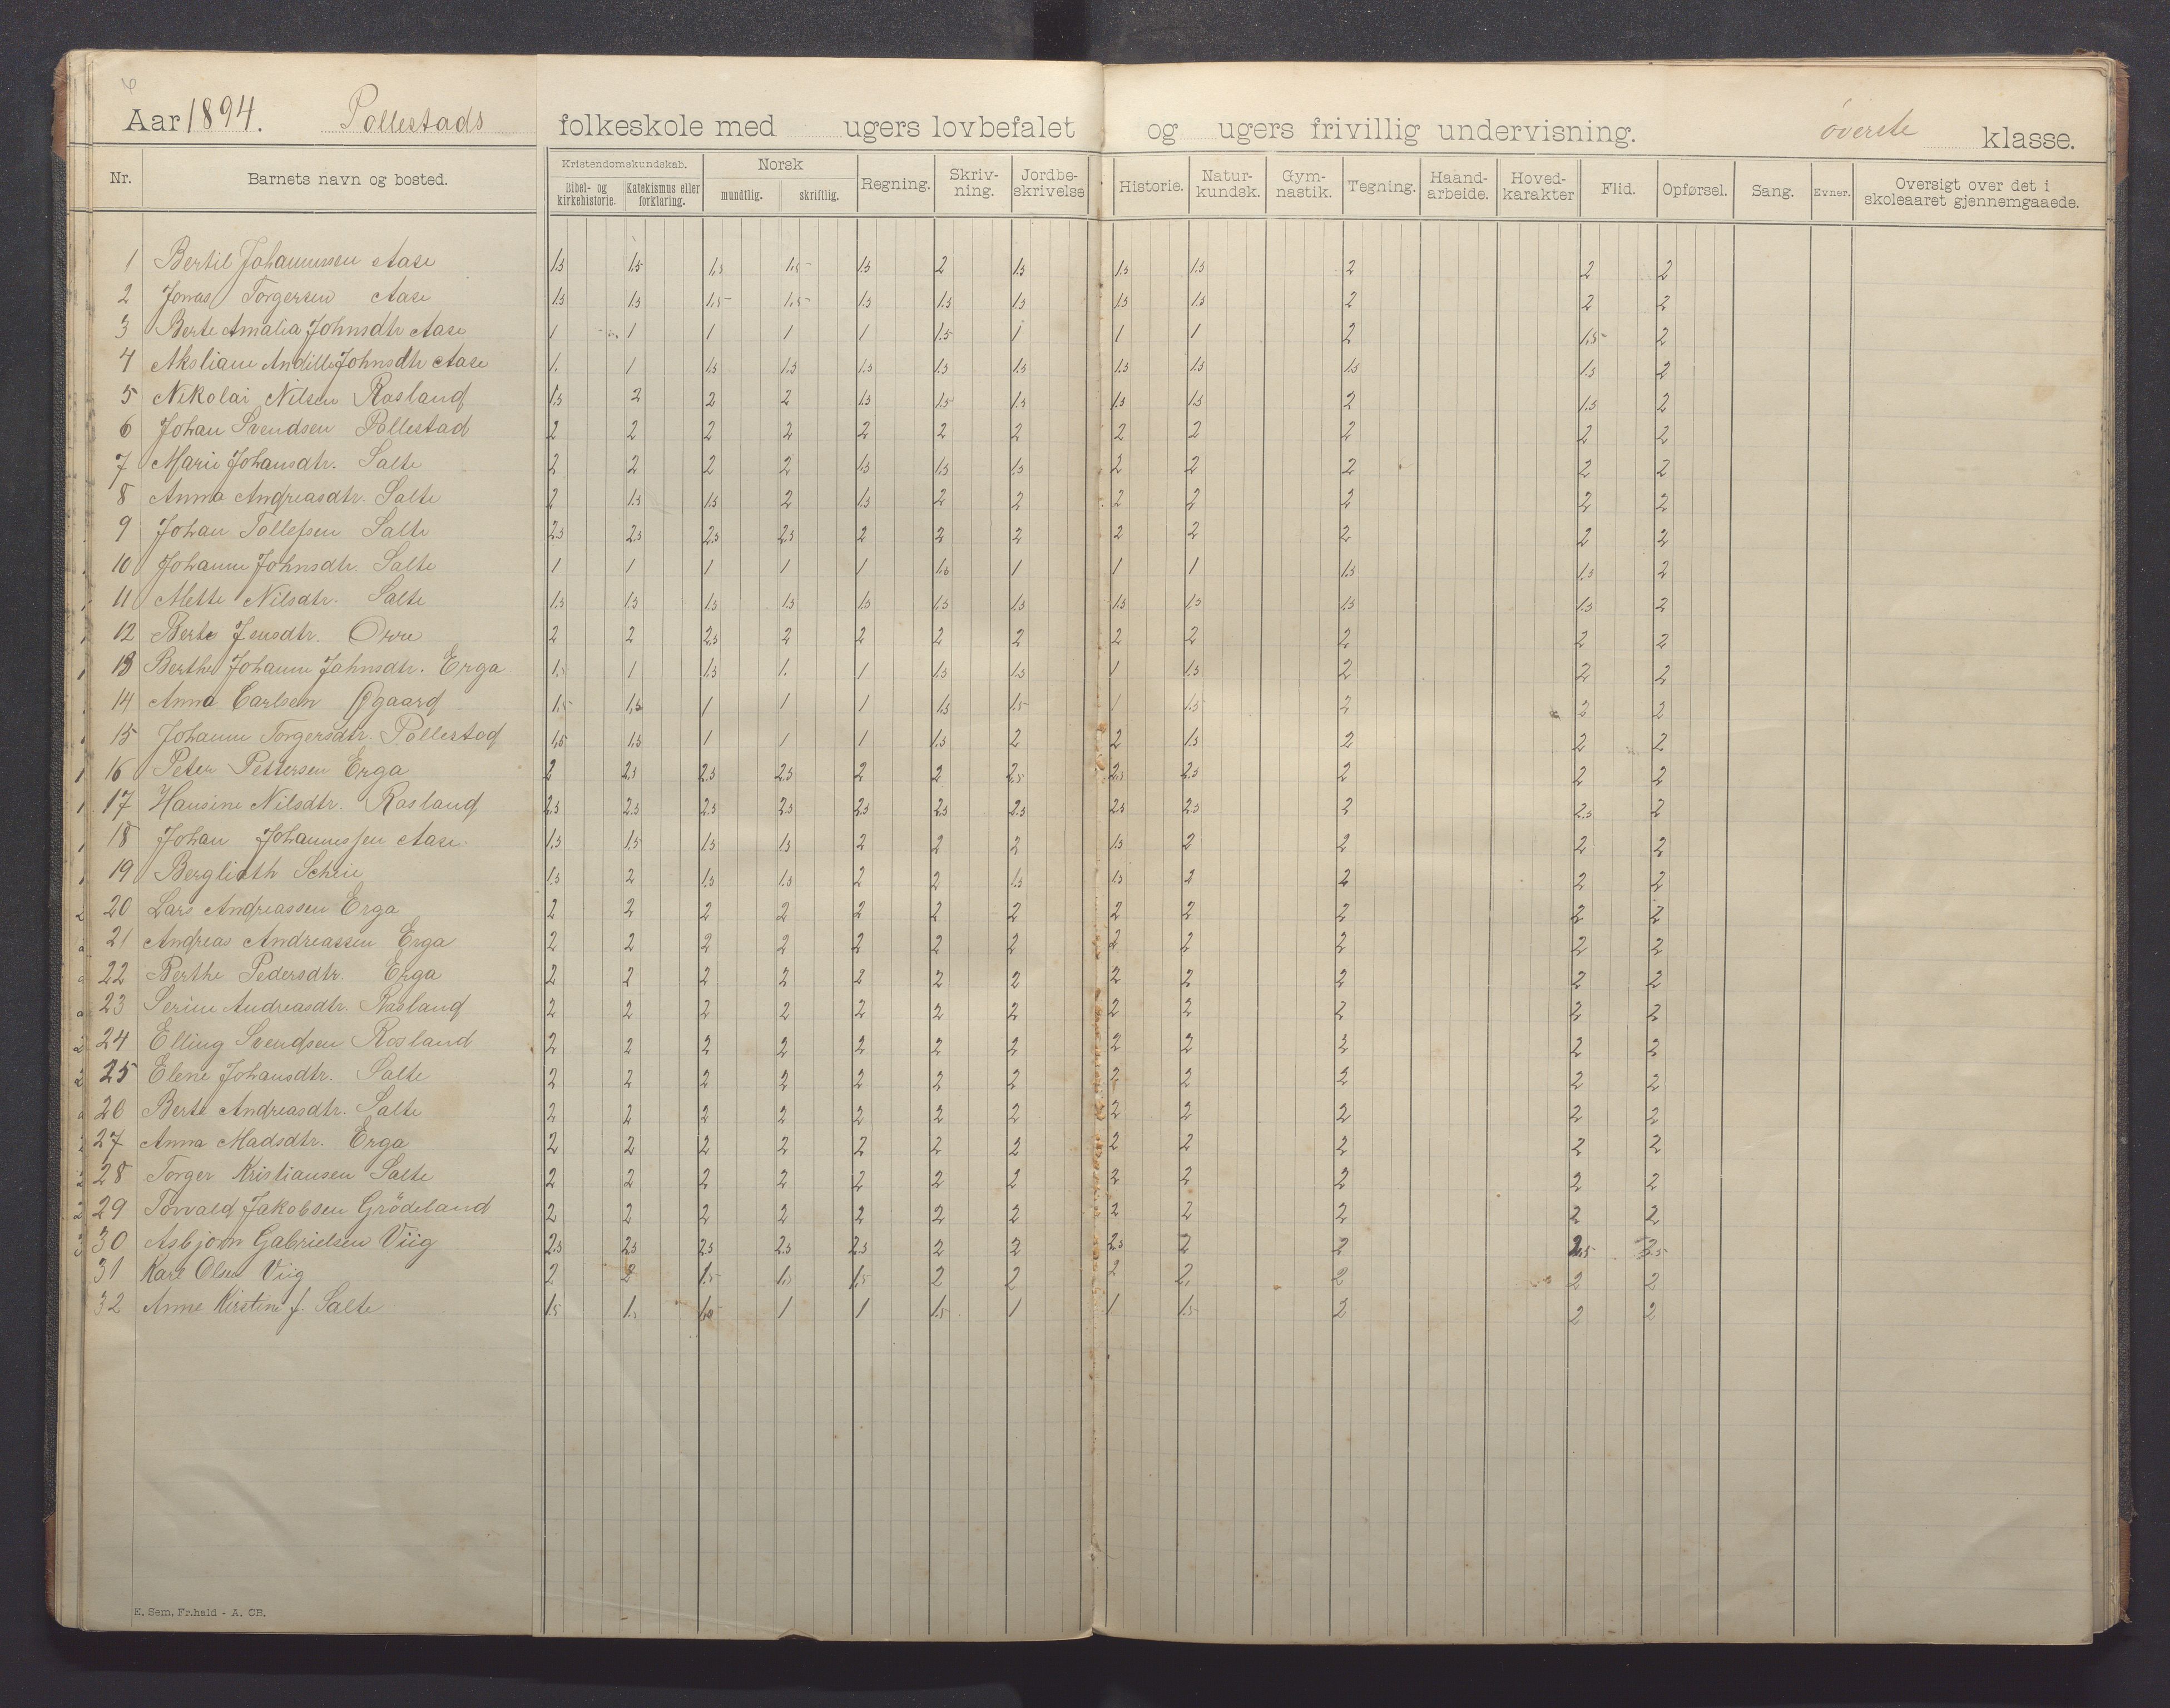 6
Aar 1894. Pollestads folkeskole med ugers lovbefalet og ugers frivillig undervisning. överste klasse.
Nr. Barnets navn og bosted. Kristendomskundskab. Bibel- og kirkehistorie. Katekismus eller forklaring. Norsk mundtlig. skriftlig. Regning. Skriv-ning. Jordbe-skrivelse Historie. Natur-kundsk. Gym-nastik. Tegning. Haand-arbeide. Hoved-karakter Flid. Opførsel. Sang. Evner. Oversigt over det i skoleaaret gjennemgaaede.
1 Bertil Johannessen Aase 1.5 1.5 1.5 1.5 1.5 2 1.5 1.5 1.5 2 2 2
2 Jonas Torgersen Aase 1.5 1.5 1.5 1.5 1.5 1.5 1.5 1.5 1.5 2 2 2
3 Berte Amalia Johnsdtr Aase 1 1 1 1 1 1.5 1 1 1 2 1.5 2
4 Johnsdtr Aase 1. 1 1.5 1.5 1.5 1.5 1.5 1.5 1.5 1.5 1.5 2
5 Nikolai Nilsen Rosland 1.5 2 2 2 1.5 1.5 1.5 1.5 1.5 2 1.5 2
6 Johan Svendsen Pollestad 2 2 2 2 2 2 2 2 2 2 2 2
7 Marie Johansdtr. Salte 2 2 2 2 1.5 1.5 1.5 2 2 2 2 2
8 Anna Andreasdtr. Salte 2 1.5 1.5 2 1.5 2 2 2 2 2 2 2
9 Johan Tollefsen Salte 2.5 2.5 2.5 2.5 2 2 2 2 2 2 2 2
10 Johanne Johnsdtr. Salte 1 1 1 1 1 1.5 1 1 1 1.5 1.5 2
11 Mette Nilsdtr. Salte 1.5 1.5 1.5 1.5 1.5 1.5 1.5 1.5 1.5 1.5 1.5 2
12 Berte Jensdtr. Orre 2 2 2.5 2 2 2 2 2 2 2 2 2
13 Berthe Johanne Jahnsdtr. Erga 1.5 1 1.5 1. 1 1.5 1.5 1 1.5 2 2 2
14 Anna Carlsen 1.5 1.5 1 1 1 1.5 1.5 1 1.5 2 2 2
15 Johanne Torgersdtr. Pollestad 1.5 1.5 1 1 1 1.5 2 2 1.5 2 2 2
16 Peter Pettersen Erga 2 2.5 2.5 2.5 2 2 2.5 2.5 2.5 2 2 2
17 Hansine Nilsdtr. Rasland 2.5 2.5 2.5 2.5 2.5 2.5 2.5 2.5 2.5 2 2.5 2
18 Johan Johannessen Aase 1.5 1.5 1.5 1.5 2 2 2 1.5 2 2 2 2
19 Berglioth 1.5 2 1.5 1.5 2 2 1.5 1.5 2 2 2 2
20 Lars Andreassen Erga 2 2 2 2 2 2 2 2 2 2 2 2
21 Andreas Andreassen Erga 2 2 2 2 2 2 2 2 2 2 2 2
22 Berthe Pedersdtr. Erga 2 2 2 2 2 2 2 2 2 2 2 2
23 Serine Andreasdtr. Rasland 2 2 2 2 2 2 2 2 2 2 2 2
24 Elling Svendsen Rosland 2 2 2 2 2 2 2 2 2 2 2 2
25 Elene Johansdtr. Salte 2 2 2 2 2 2 2 2 2 2 2 2
26 Berte Andreasdtr. Salte 2 2 2 2 2 2 2 2 2 2 2 2
27 Anna Madsdtr. Erga 2 2 2 2 2 2 2 2 2 2 2 2
28 Torger Kristiansen Salte 2 2 2 2 2 2 2 2 2 2 2 2
29 Torvald Jakobsen Grödeland 2 2 2 2 2 2 2 2 2 2 2 2
30 Asbjorn Gabrielsen Viig 2.5 2.5 2.5 2.5 2.5 2 2 2.5 2 2 2.5 2.5
31 Karl Olsen Viig 2 2 1.5 1.5 1.5 2 2 2 2. 2 2 2
32 Anne Kirstine J. Salte 1.5 1.5 1.5 1 1 1.5 1 1 1.5 2 2 2
E. Sem, Fr.hald - A. CB.